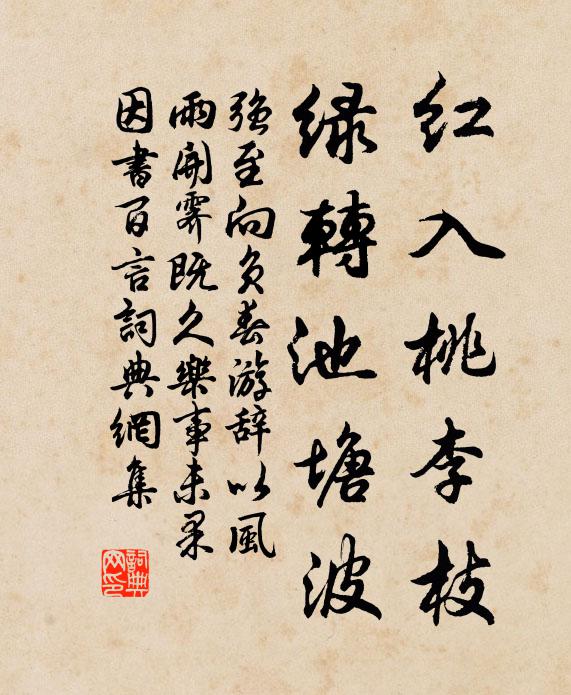 红入桃李枝
绿轉池塘波
强至向负春游辞以風
雨開霽既久樂事未果
因書百言詞典網集
詞典网印